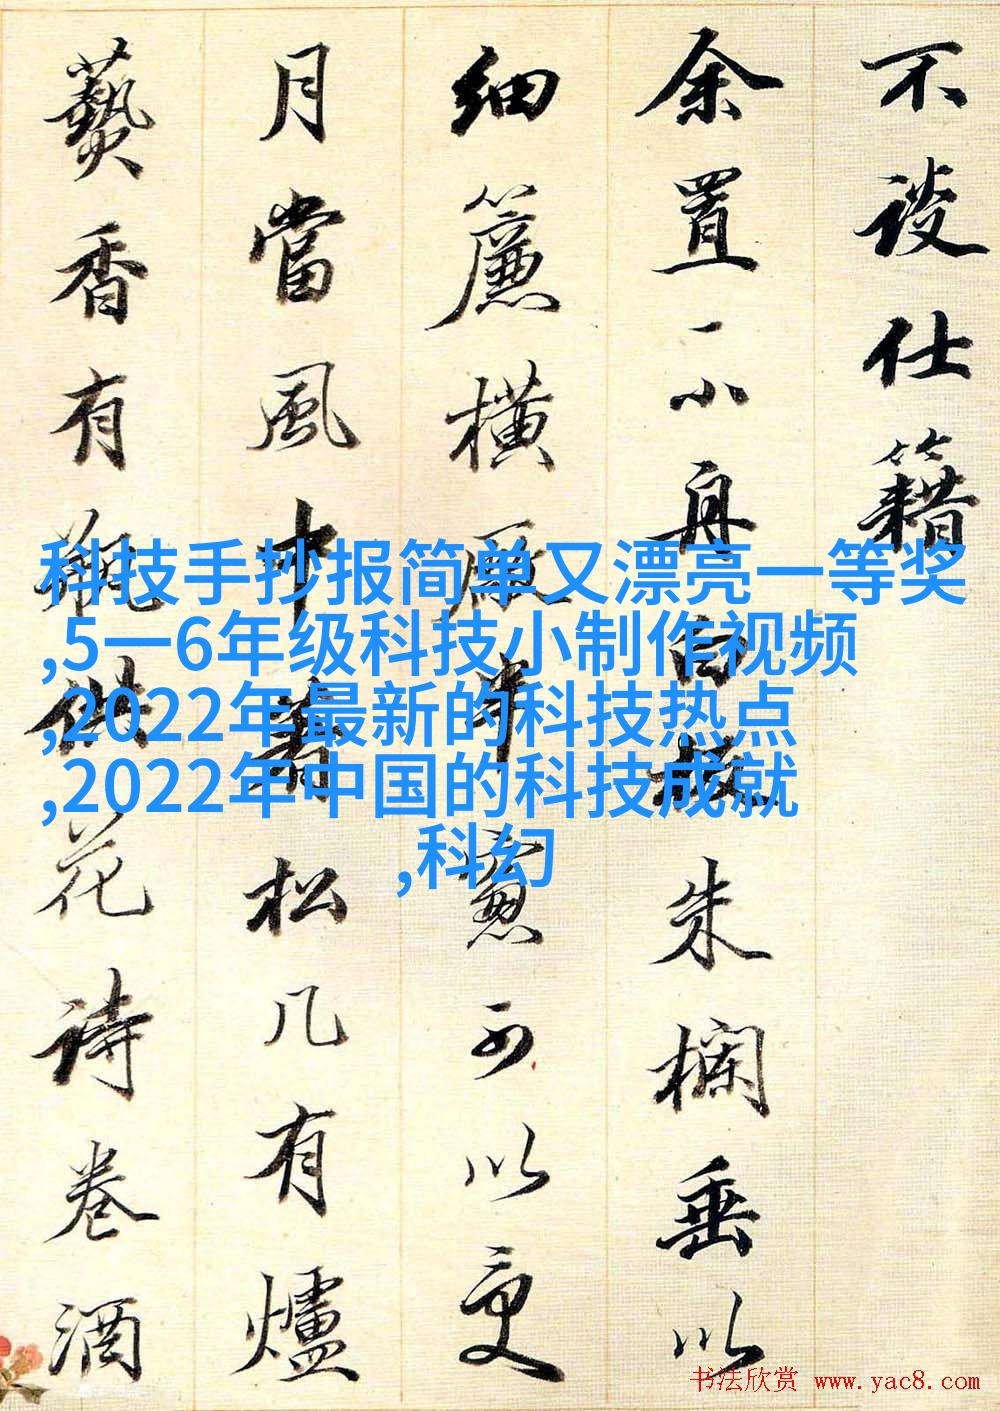 不談仕籍
余置一小舟白板朱欄垂以
細簾橫半窓可以更
月當風中着松几有爐
爇香有瓶供花詩卷酒
科技手抄报简单又漂亮一等奖
,5一6年级科技小制作视频
,2022年最新的科技热点
,2022年中国的科技成就
,科幻
书法欣赏 www.yac8.com